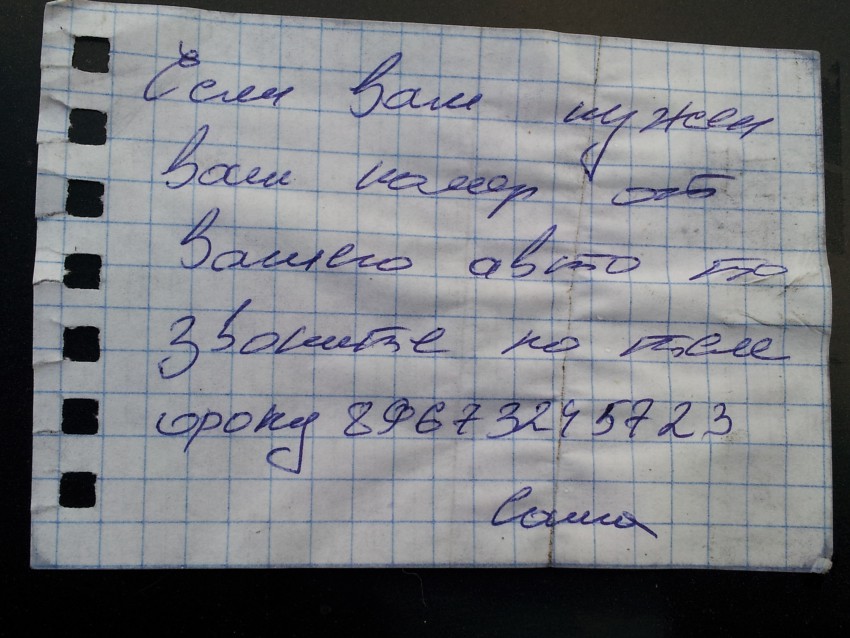 Если вам нужен
ваш намер от
вашего авто то
звоните по теле
фону 89673245723
Саша